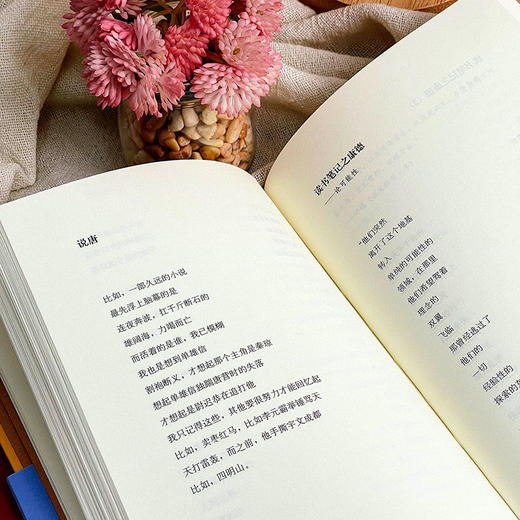 说唐
比如，一部久远的小说
最先浮上脑幕的是
连夜奔波，扛千斤断石的
雄阔海，力竭而亡
而活着的是谁，我已模糊
我也是想到单雄信
割袍断义，才想起那个主角是秦琼
想起单雄信独踹唐营时的失落
才想起是尉迟恭在追打他
我只记得这些，其他要很努力才能回忆起
比如，卖枣红马，比如李元霸举锤骂天
天打雷轰，而之前，他手撕宇文成都
比如，四明山。
读书笔记之康德
——论可能性
“他们突然
离开了这个地基
转入
单纯的可能性的
领域，在那里
他们希望驾着
理念的
双翼
飞临
那曾经逃过了
他们的
一切
经验性的
探索的